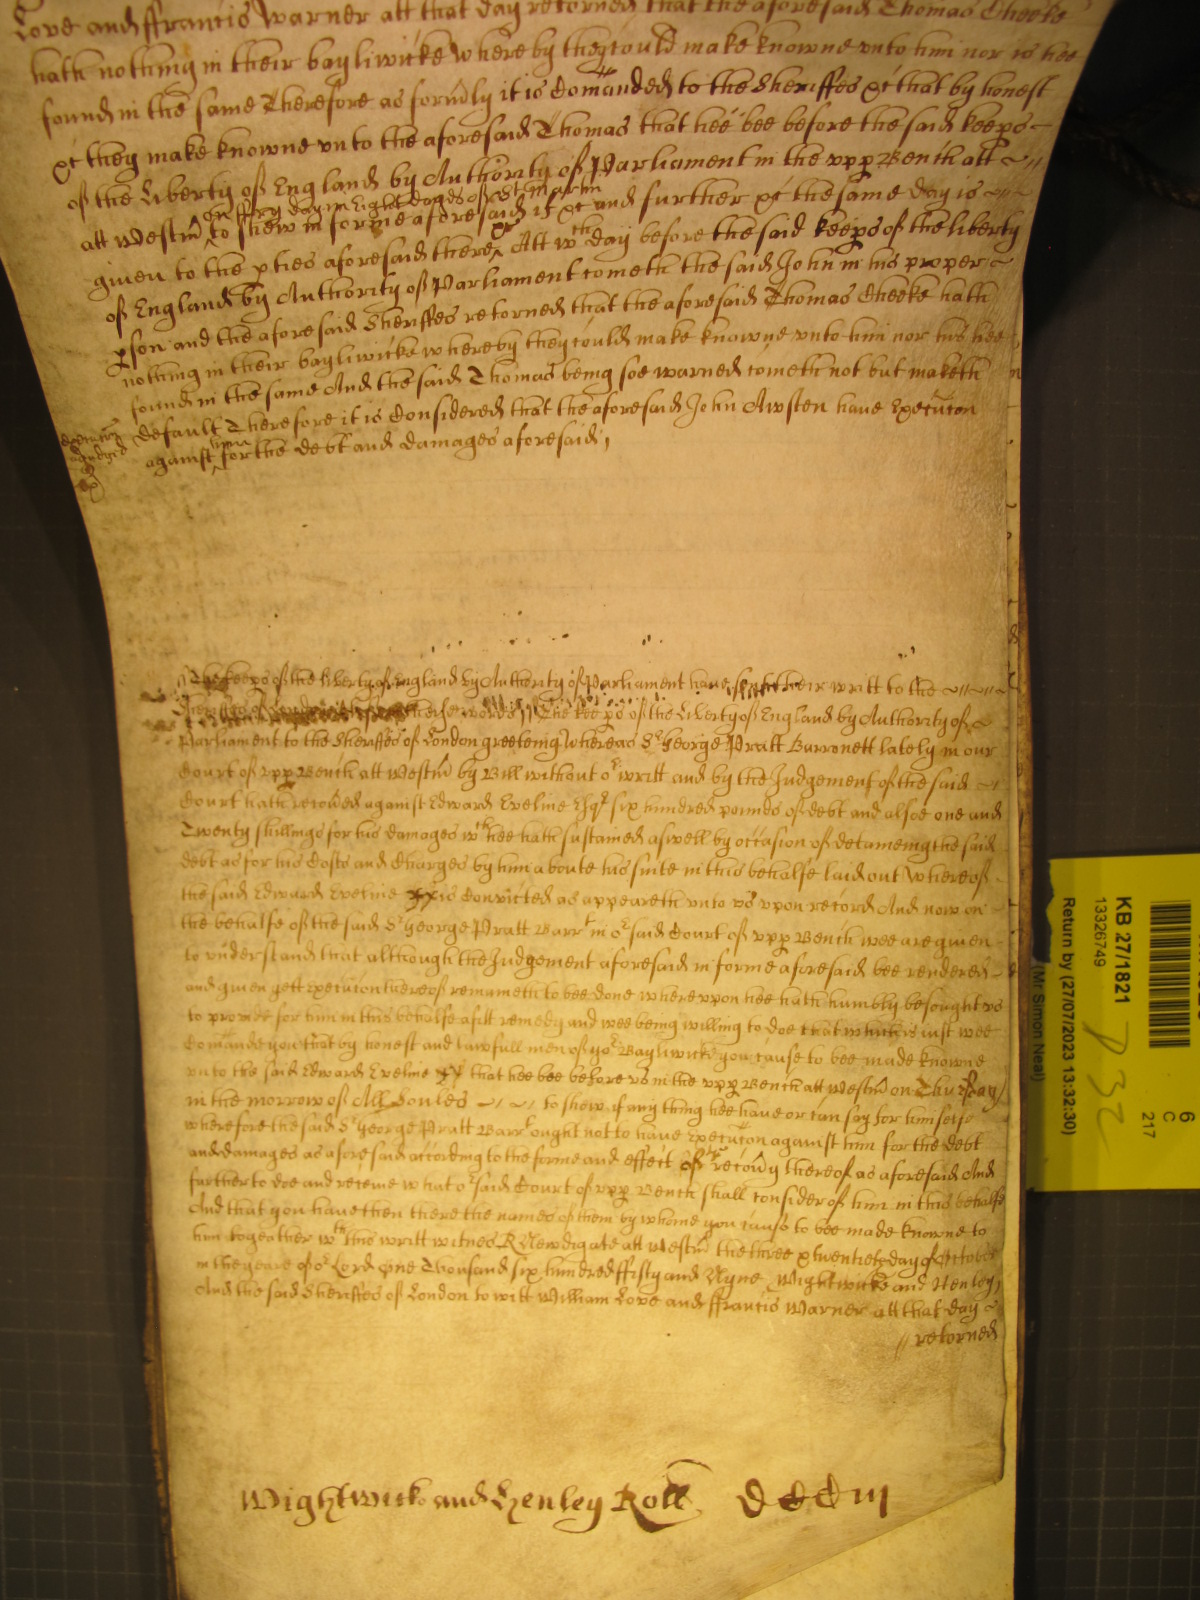 Love and ffrancis Warner att that day retorned that the aforesaid Thomas Cheeke
hath nothing in their bayliwicke whereby they could make knowne unto him nor is hee
found in the same Therefore as formly it is Comanded to the Sheriffes &c that by honest
&c they make knowne unto the aforesaid Thomas that hee bee before the said keeps
of the Liberty of England by Authority of Parliament in the upp Bench att
on day in Eight dayes of St Martin
att Westm to shew in forme aforesaid if &c and further &c the same day is
given to the pties aforesaid there &c Att wch day before the said keeps of the liberty
of England by Authority of Parliament cometh the said John in his proper
pson and the aforesaid Sheriffes retorned that the aforesaid Thomas Cheeke hath
nothing in their bayliwicke whereby they could make knowne unto him nor his hee
found in the same And the said Thomas being soe warned cometh not but maketh
default Therefore it is Considered that the aforesaid John Awsten have Execucon
against him for the debt and damages aforesaid
The keeps of the liberty of England by Authority of Parliament have sent their writt to the
Sheriffes of London in these words The keeps of the Liberty of England by Authority of
Parliament to the Sheriffes of London greeteing Whereas Sr George Pratt Barronett lately in our
Court of upp Bench att Westm by Bill without or writt and by the Judgement of the said
Court hath recoved against Edward Eveline Esqr six hundred pounds of debt and alsoe one and
Twenty shillings for his damages wch hee hath sustained aswell by occasion of detaineing the said
debt as for his Costs and Charges by him aboute his suite in this behalfe laid out Whereof
the said Edward Eveline is Convicted as appeareth unto us upon record And now on
the behalfe of the said Sr George Pratt Barrt in or said Court of upp Bench wee are given
to understand that although the Judgement aforesaid in forme aforesaid bee rendered
and given yett Execucion thereof remaineth to bee done whereupon hee hath humbly besought us
to provide for him in this behalfe a fitt remedy and wee being willing to doe that which is iust wee
Comande you that by honest and lawfull men of yor Bayliwicke you cause to bee made knowne
unto the said Edward Eveline that hee bee before us in the upp Bench att Westm on Thursday
in the morrow of All Soules to shew if any thing hee have or can say for himselfe
wherefore the said Sr George Pratt Barrt ought not to have Execucon against him for the debt
and damages as aforesaid according to the forme and effect of the recovy thereof as aforesaid And
further to doe and receive what or said Court of upp Bench shall consider of him in this behalfe
And that you have then there the names of them by whome you cause to bee made knowne to
him togeather wth this writt witnes R Newdigate att Westm the three & twentieth day of October
in the yeare of or Lord One Thousand six hundred ffifty and Nyne Wightwicke and Henley
And the said Sheriffes of London to witt William Love and ffrancis Warner att that day
retorned
Wightwick and Henley Roll DCCCIII
KB 27/1821
13326749
Return by (27/07/2023 13:32:30)
(Mr Simon Neal)
6
C
217